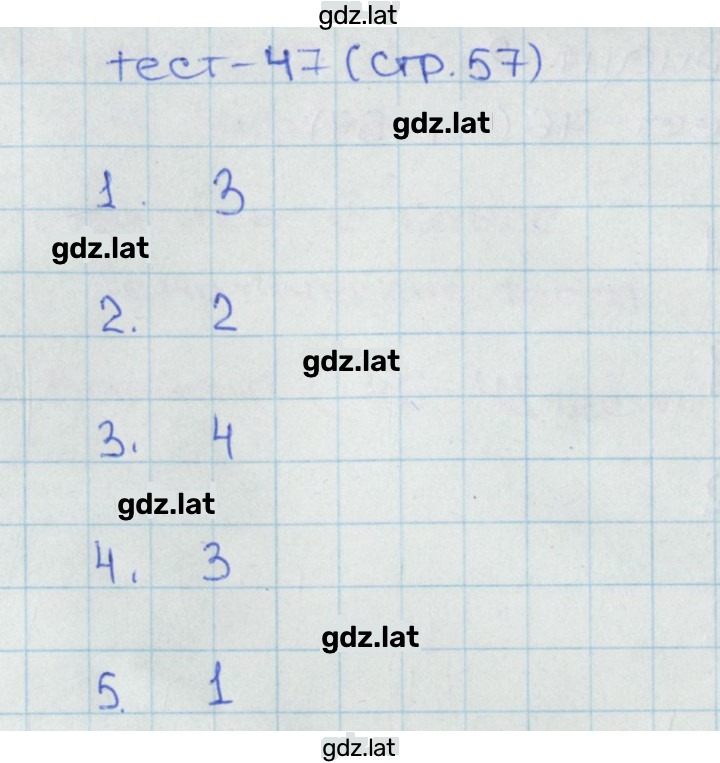 gdz.lat
тест-47 (стр. 57)
gdz.lat
1. 3
gdz.lat
2. 2
gdz.lat
3. 4
gdz.lat
4. 3
gdz.lat
5. 1
gdz.lat